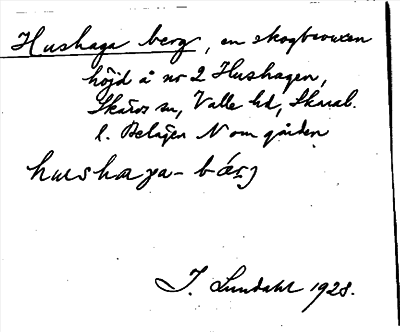 Hushaga berg, en skogbevuxen
höjd å nr 2 Hushagen,
Skärvs sn, Valle hd, Skarab.
l. Belägen N om gården
hushaga-bárj
I. Lundahl 1928.